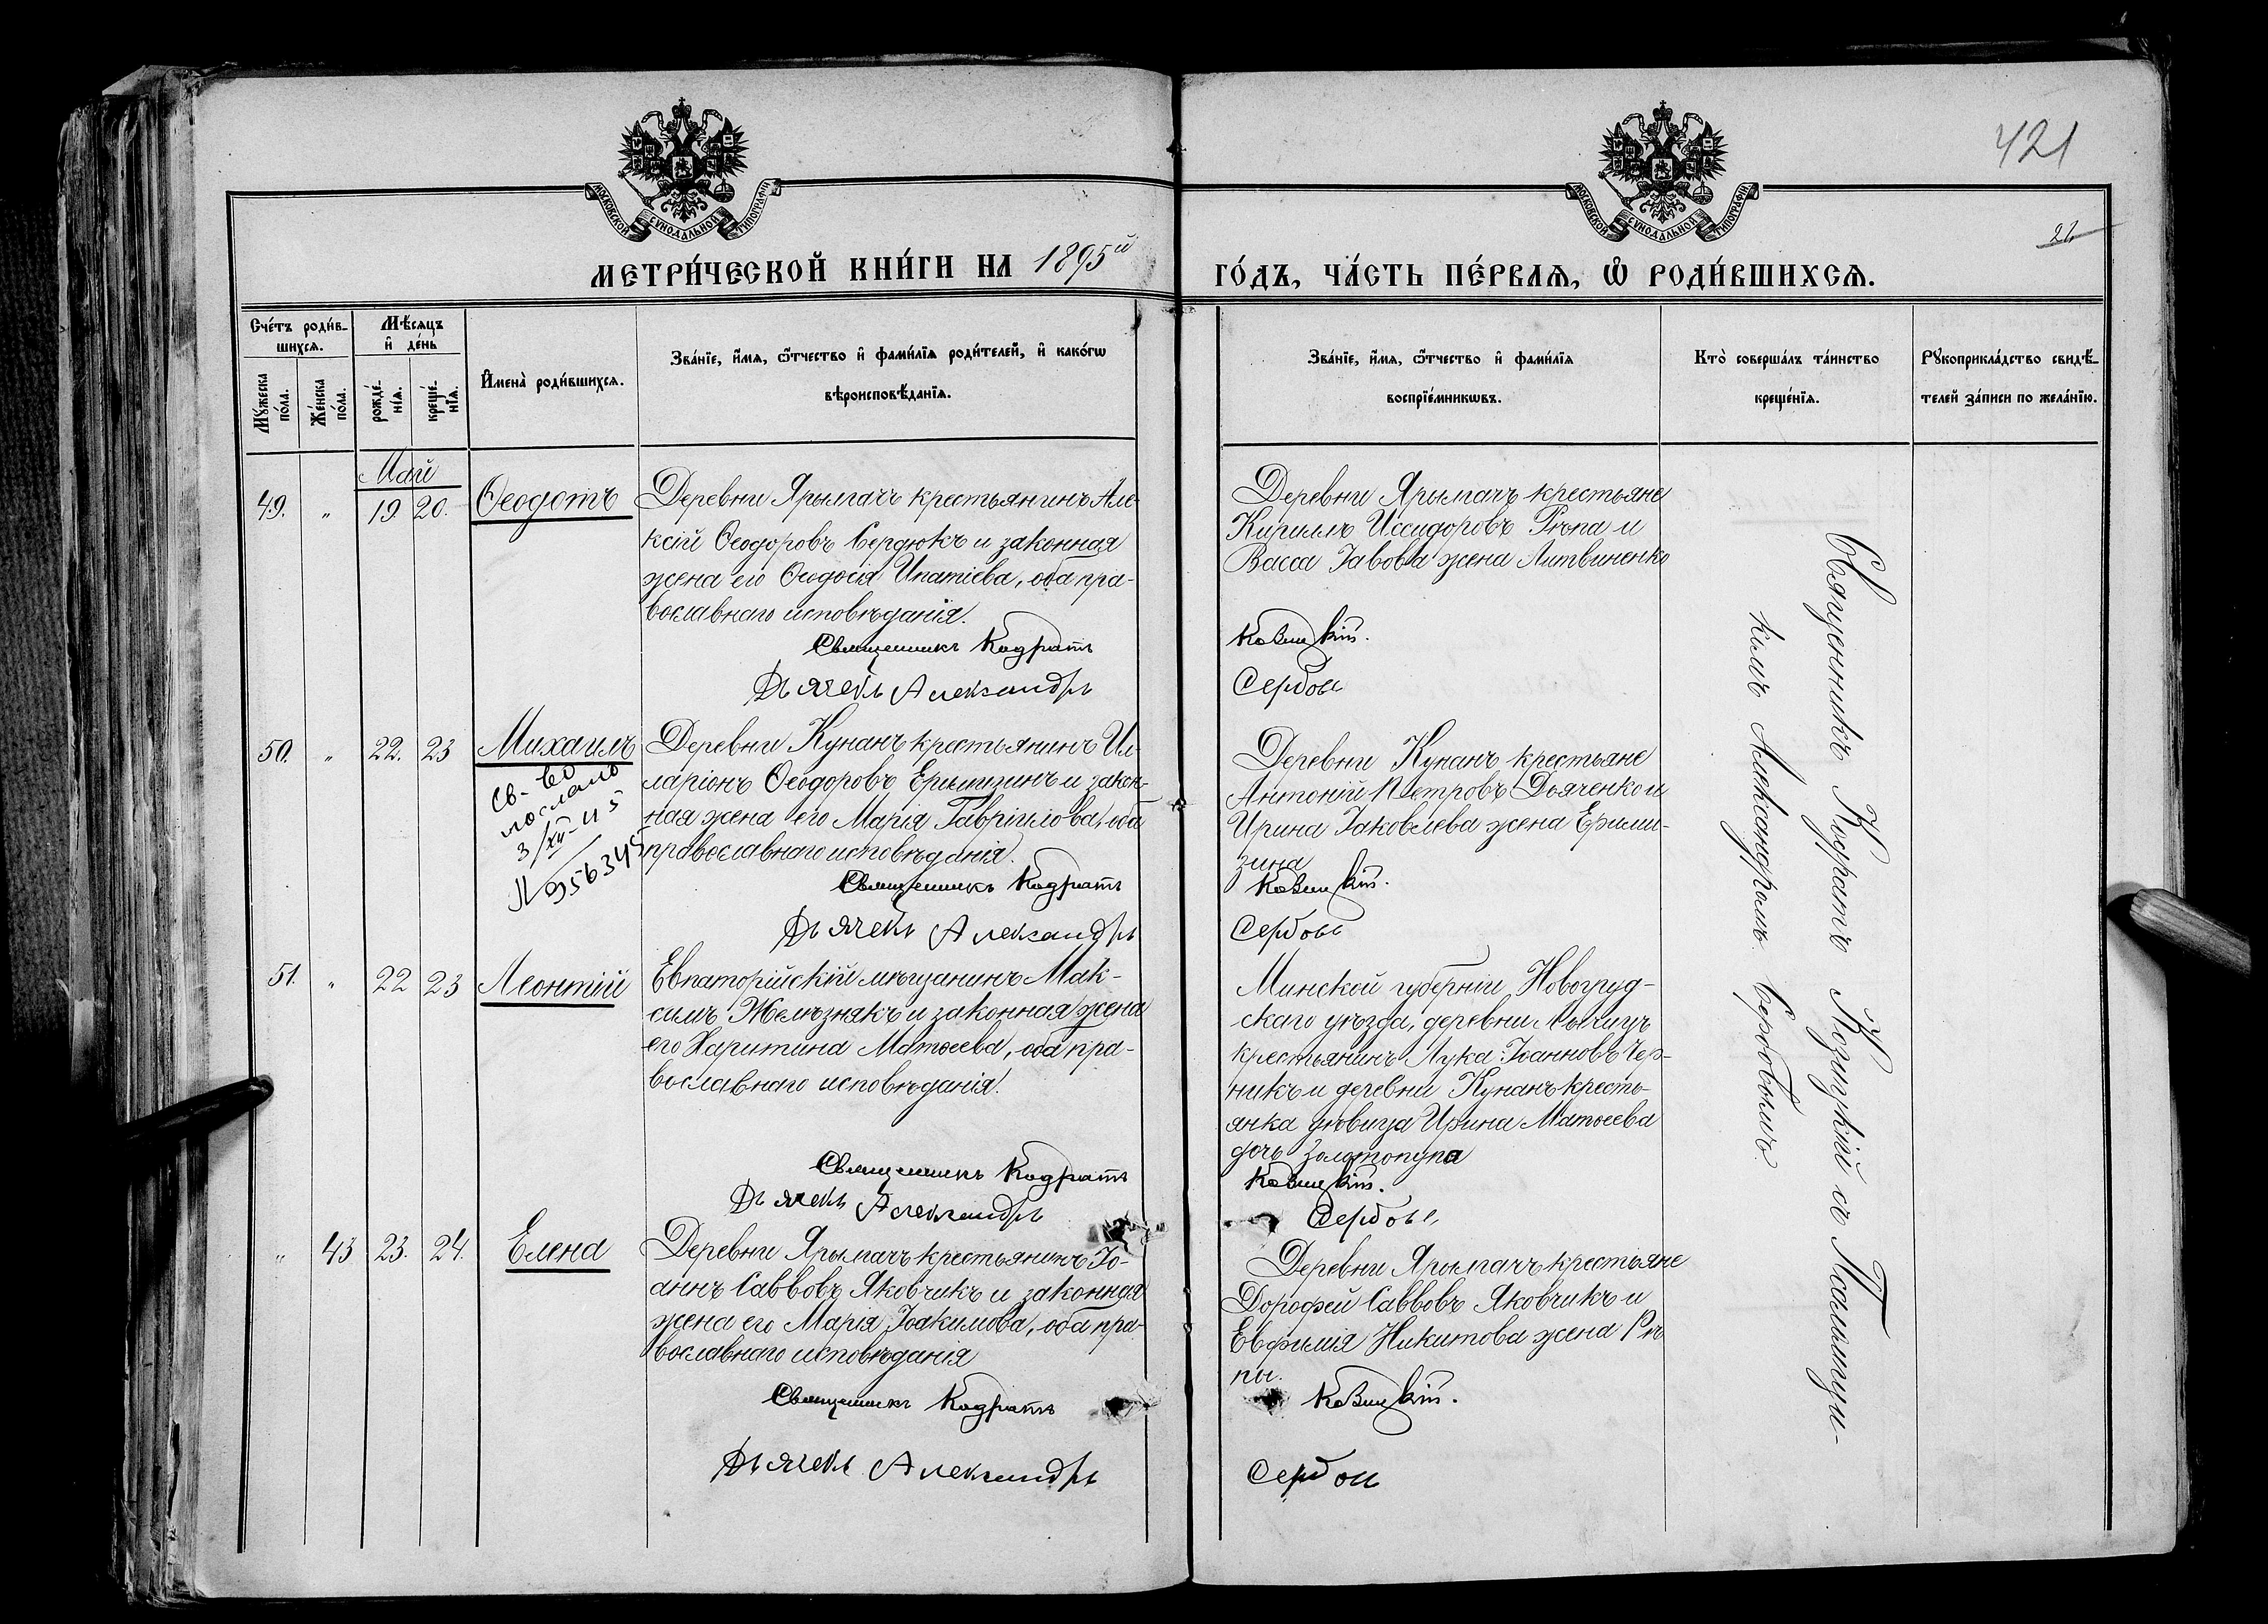 421
26
МОСКОВСКОЙ СѴНОДАЛЬНОЙ ТИПОГРАФІИ
МОСКОВСКОЙ СѴНОДАЛЬНОЙ ТИПОГРАФІИ
МЕТРИ́ЧЕСКОЙ КНИ́ГИ НА 1895й
ГО́ДЪ, ЧА́СТЬ ПЕ́РВАѦ, Ѡ҆ РОДИ́ВШИХСѦ.
Сче́тъ роди́в-
шихсѧ.
Мꙋ́жеска
по́ла.
Же́нска
по́ла.
Мѣ́сѧцъ
и҆ де́нь
рожде́-
нїѧ.
креще́-
нїѧ.
И҆мена̀ роди́вшихсѧ.
Зва́нїе, и҆́мѧ, ѻ҆́тчество и҆ фами́лїѧ роди́телей, и҆ како́гѡ
вѣроисповѣ́данїѧ.
Зва́нїе, и҆́мѧ, ѻ҆́тчество и҆ фами́лїѧ
воспрїе́мникѡвъ.
Кто̀ соверша́лъ та́инство
креще́нїѧ.
Рꙋкоприкла́дство свидѣ́-
телей за́писи по жела́нїю.
Май
49. " 19. 20. Ѳеодотъ
Деревни Ярылгачъ крестьянинъ Але-
ксій Ѳеодоровъ Сердюкъ и законная
жена его Ѳеодосія Ипатіева, оба пра-
вославнаго исповѣданія.
Священникъ Кодратъ
Дьячекъ Александръ
Деревни Ярылгачъ крестьяне
Кириллъ Исидоровъ Рѣпа и
Васса Іавова жена Литвиненко
Козицкій.
Сербовъ
50. " 22. 23 Михаилъ
св-во
послано
3/XII-45
№ 956345
Деревни Кунанъ крестьянинъ Ил-
ларіонъ Ѳеодоровъ и закон-
ная жена его Марія Гавріилова, оба
православнаго исповѣданія.
Священникъ Кодратъ
Дьячекъ Александръ
Деревни Кунанъ крестьяне
Антоній Петровъ Дьяченко и
Ирина Іаковлева жена
зина
Козицкій.
Сербовъ
51. " 22 23 Леонтій
Евпаторійскій мѣщанинъ Мак-
симъ Желѣзнякъ и законная жена
его Харитина Матѳеева, оба пра-
вославнаго исповѣданія.
Священникъ Кодратъ
Дьячекъ Александръ
Минской губерніи Новогруд-
скаго уѣзда, деревни
крестьянинъ Лука Іоанновъ Чер-
никъ и деревни Кунанъ кресть-
янка дѣвица Ирина Матѳеева
дочь Золотопупа
Козицкій.
Сербовъ
" 43 23. 24. Елена
Деревни Ярылгачъ крестьянинъ Іо-
аннъ Саввовъ Яковчикъ и законная
жена его Марія Іоакимова, оба пра-
вославнаго исповѣданія
Священникъ Кодратъ
Дьячекъ Александръ
Деревни Ярылгачъ крестьяне
Дорофей Саввовъ Яковчикъ и
Евфимія Никитова жена Рѣ-
пы.
Козицкій.
Сербовъ
Священникъ Кодратъ Козицкій съ Псаломщи-
комъ Александромъ Сербовымъ.